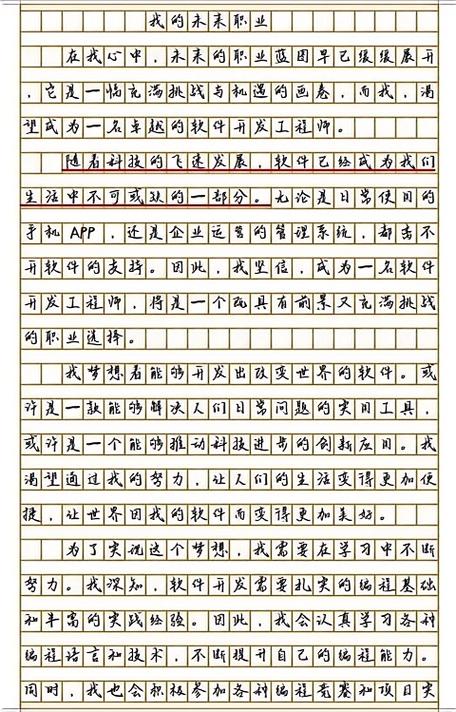 我的未来职业
在我心中，未来的职业蓝图早已缓缓展开
，它是一幅充满挑战与机遇的画卷，而我，渴
望成为一名卓越的软件开发工程师。
随着科技的飞速发展，软件已经成为我们
生活中不可或缺的一部分。无论是日常使用的
手机APP，还是企业运营的管理系统，都离不
开软件的支持。因此，我坚信，成为一名软件
开发工程师，将是一个既具有前景又充满挑战
的职业选择。
我梦想着能够开发出改变世界的软件。或
许是一款能够解决人们日常问题的实用工具，
或许是一个能够推动科技进步的创新应用。我
渴望通过我的努力，让人们的生活变得更加便
捷，让世界因我的软件而变得更加美好。
为了实现这个梦想，我需要在学习中不断
努力。我深知，软件开发需要扎实的编程基础
和丰富的实践经验。因此，我会认真学习各种
编程语言和技术，不断提升自己的编程能力。
同时，我也会积极参加各种编程竞赛和项目实